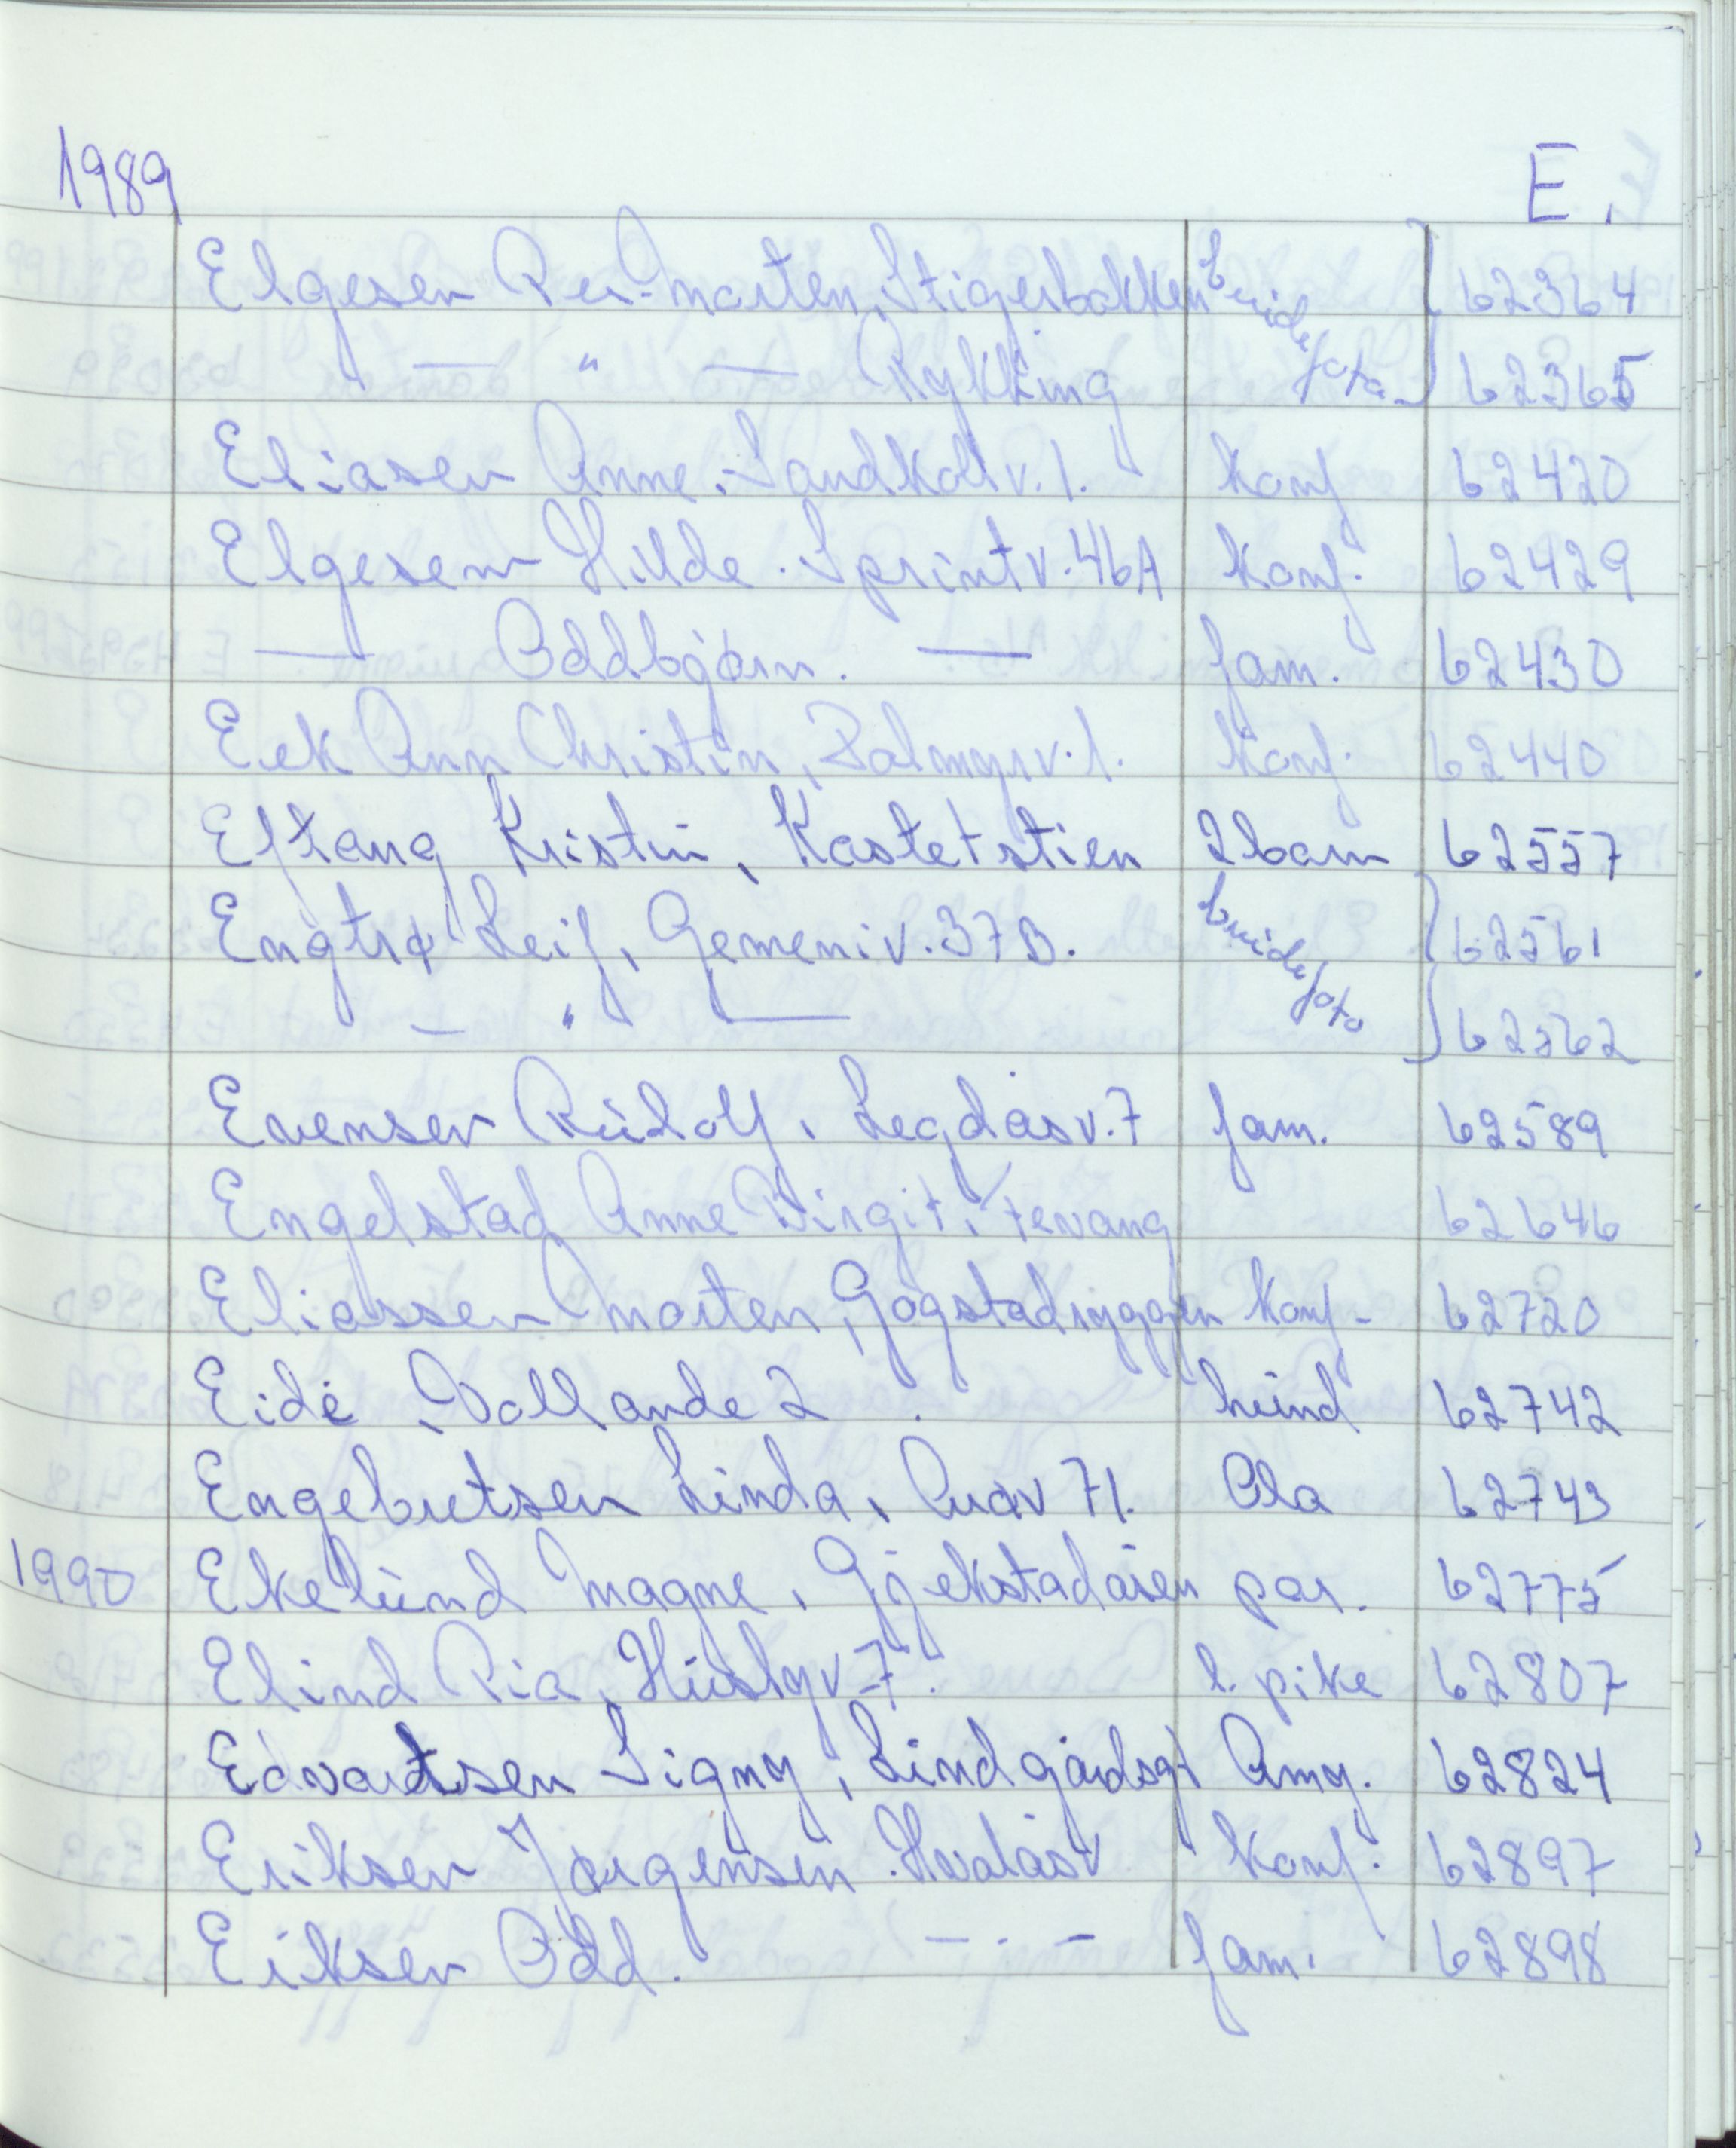 1989 E.
Elgesen Per-Morten, Stigerbakken brude 62364
— " — Rykking foto 62365
Eliasen Anne. Sandkollv. 1. Konf 62420
Elgesem Hilde. Sprintv. 46A Konf. 62429
— Oddbjørn. — fam. 62430
Eek Ann Christin, Palmyrv. 1. Konf. 62440
Eftang Kristin, Kastetstien 2 barn 62557
Engtrø Leif, Gemeniv. 37B. brude 62561
— " — foto 62562
Evensen Rudolf, Legdåsv. 7 fam. 62589
Engelstad Anne Birgit, Stenvang 62646
Eliassen Morten, Gogstadryggen Konf- 62720
Eide, Vollande 2 hund 62742
Engebretsen Linda, Auav 71. Ola 62743
1990 Ekelund Magne, Gjekstadåsen par. 62775
Elind Pia, Huslyv 7. l. pike 62807
Edvardsen Signy, Lindgårdsgt Amy. 62824
Eriksen Jørgensen. Hvalåsv Konf. 62897
Eiksen Odd. — . — fam. 62898